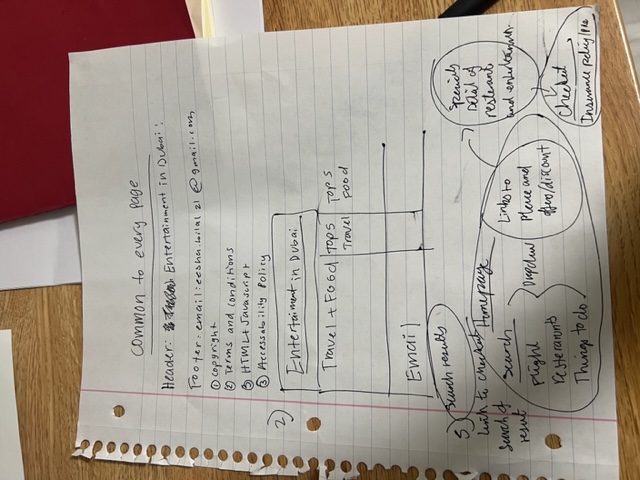 Common to every page
Header: Entertainment in Dubai:
Footer: email: eesha.bilal21@gmail.com
① copyright
② Terms and conditions
③ HTML + Javascript
③ Accessability Policy
2)
Entertaiment in Dubai
Travel + Food
Top 5
Travel
Top 5
Food
Email
3)
Search results
Link to checkout
Search of
result
Homepage
Search
flight
resteraunts
Things to do
Dropdown
Links to
Place and
offers/discount
Specials
Detail of
resterant
and entertainmen
Checkout
Insurance policy/